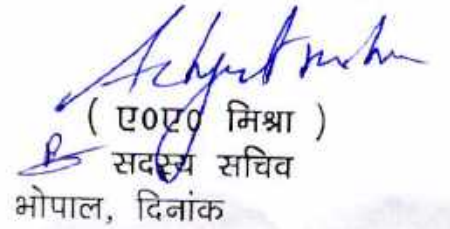 ( ए०ए० मिश्रा )
सदस्य सचिव
भोपाल, दिनांक